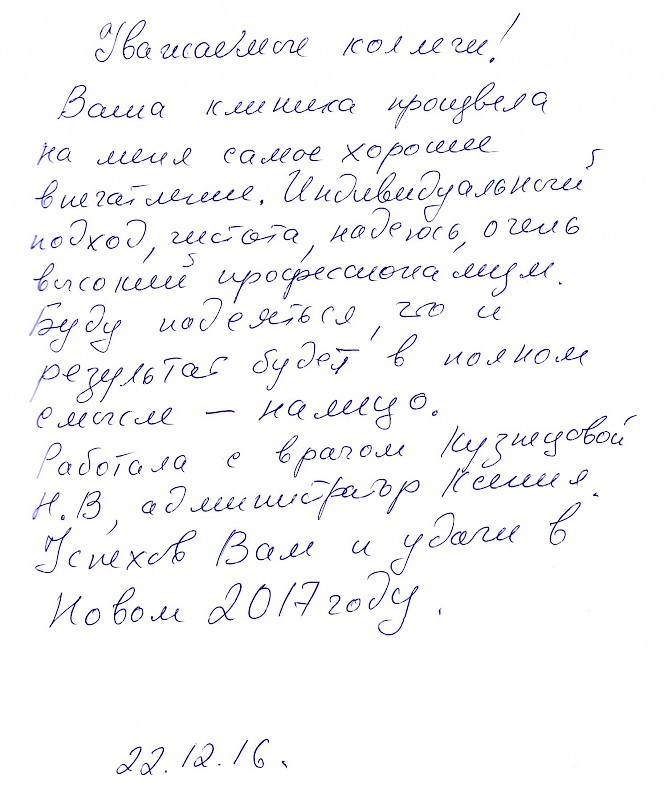 Уважаемые коллеги!
Ваша клиника произвела
на меня самое хорошее
впечатление. Индивидуальный
подход, чистота, надеюсь, очень
высокий профессионализм.
Буду надеяться, что и
результат будет в полном
смысле — на лицо.
Работала с врачом Кузнецовой
Н.В, администратор Ксения.
Успехов Вам и удачи в
Новом 2017 году.
22.12.16.